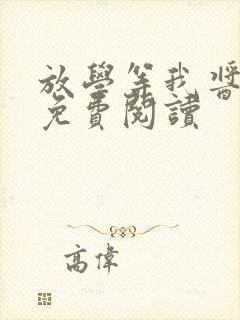 放學等我醬
免費閱讀
高偉